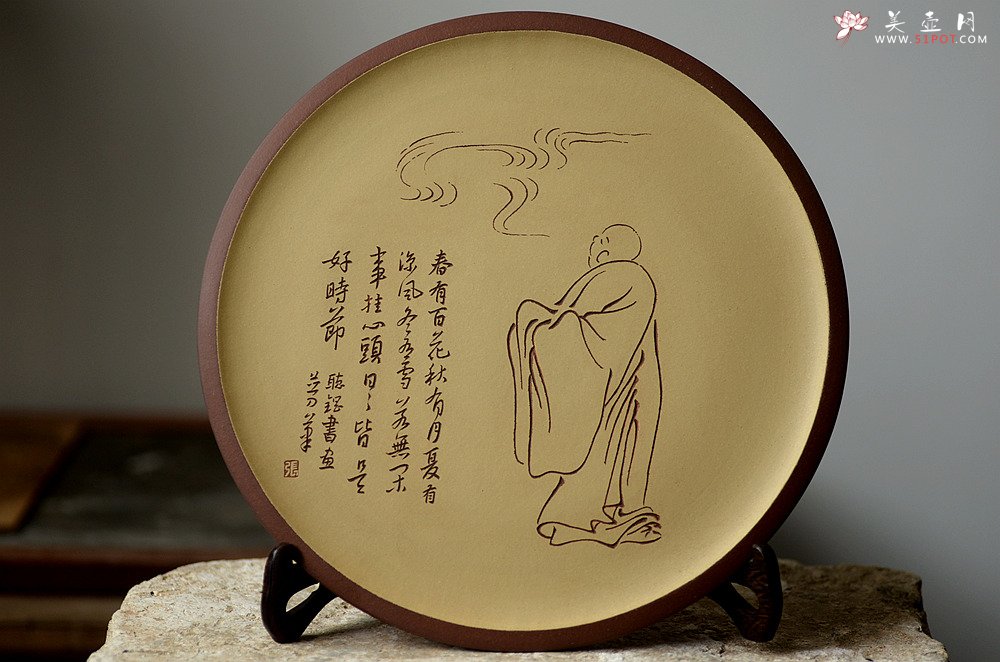 美壶网
WWW.51POT.COM
春有百花秋有月夏有
涼风冬有雪若無闲
事挂心頭日〻皆是
好時節
書画
張